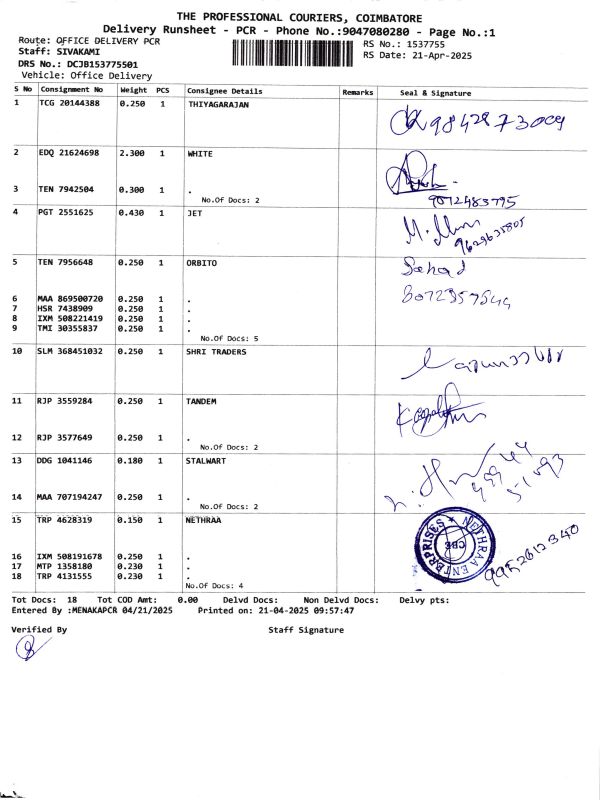 THE PROFESSIONAL COURIERS, COIMBATORE
Delivery Runsheet - PCR - Phone No.:9047080280 - Page No.:1
Route: OFFICE DELIVERY PCR
RS No.: 1537755
Staff: SIVAKAMI
RS Date: 21-Apr-2025
DRS No.: DCJB153775501
Vehicle: Office Delivery
S No Consignment No Weight PCS Consignee Details Remarks Seal & Signature
1 TCG 20144388 0.250 1 THIYAGARAJAN
9842873009
2 EDQ 21624698 2.300 1 WHITE
3 TEN 7942504 0.300 1 .
No.Of Docs: 2
9012483795
4 PGT 2551625 0.430 1 JET
9629635805
5 TEN 7956648 0.250 1 ORBITO
6 MAA 869500720 0.250 1 .
7 HSR 7438909 0.250 1 .
8 IXM 508221419 0.250 1 .
9 TMI 30355837 0.250 1 .
No.Of Docs: 5
10 SLM 368451032 0.250 1 SHRI TRADERS
11 RJP 3559284 0.250 1 TANDEM
12 RJP 3577649 0.250 1 .
No.Of Docs: 2
13 DDG 1041146 0.180 1 STALWART
14 MAA 707194247 0.250 1 .
No.Of Docs: 2
15 TRP 4628319 0.150 1 NETHRAA
NETHRAA ENTERPRISES
CBE
9952612340
16 IXM 508191678 0.250 1 .
17 MTP 1358180 0.230 1 .
18 TRP 4131555 0.230 1 .
No.Of Docs: 4
Tot Docs: 18 Tot COD Amt: 0.00 Delvd Docs: Non Delvd Docs: Delvy pts:
Entered By :MENAKAPCR 04/21/2025 Printed on: 21-04-2025 09:57:47
Verified By Staff Signature